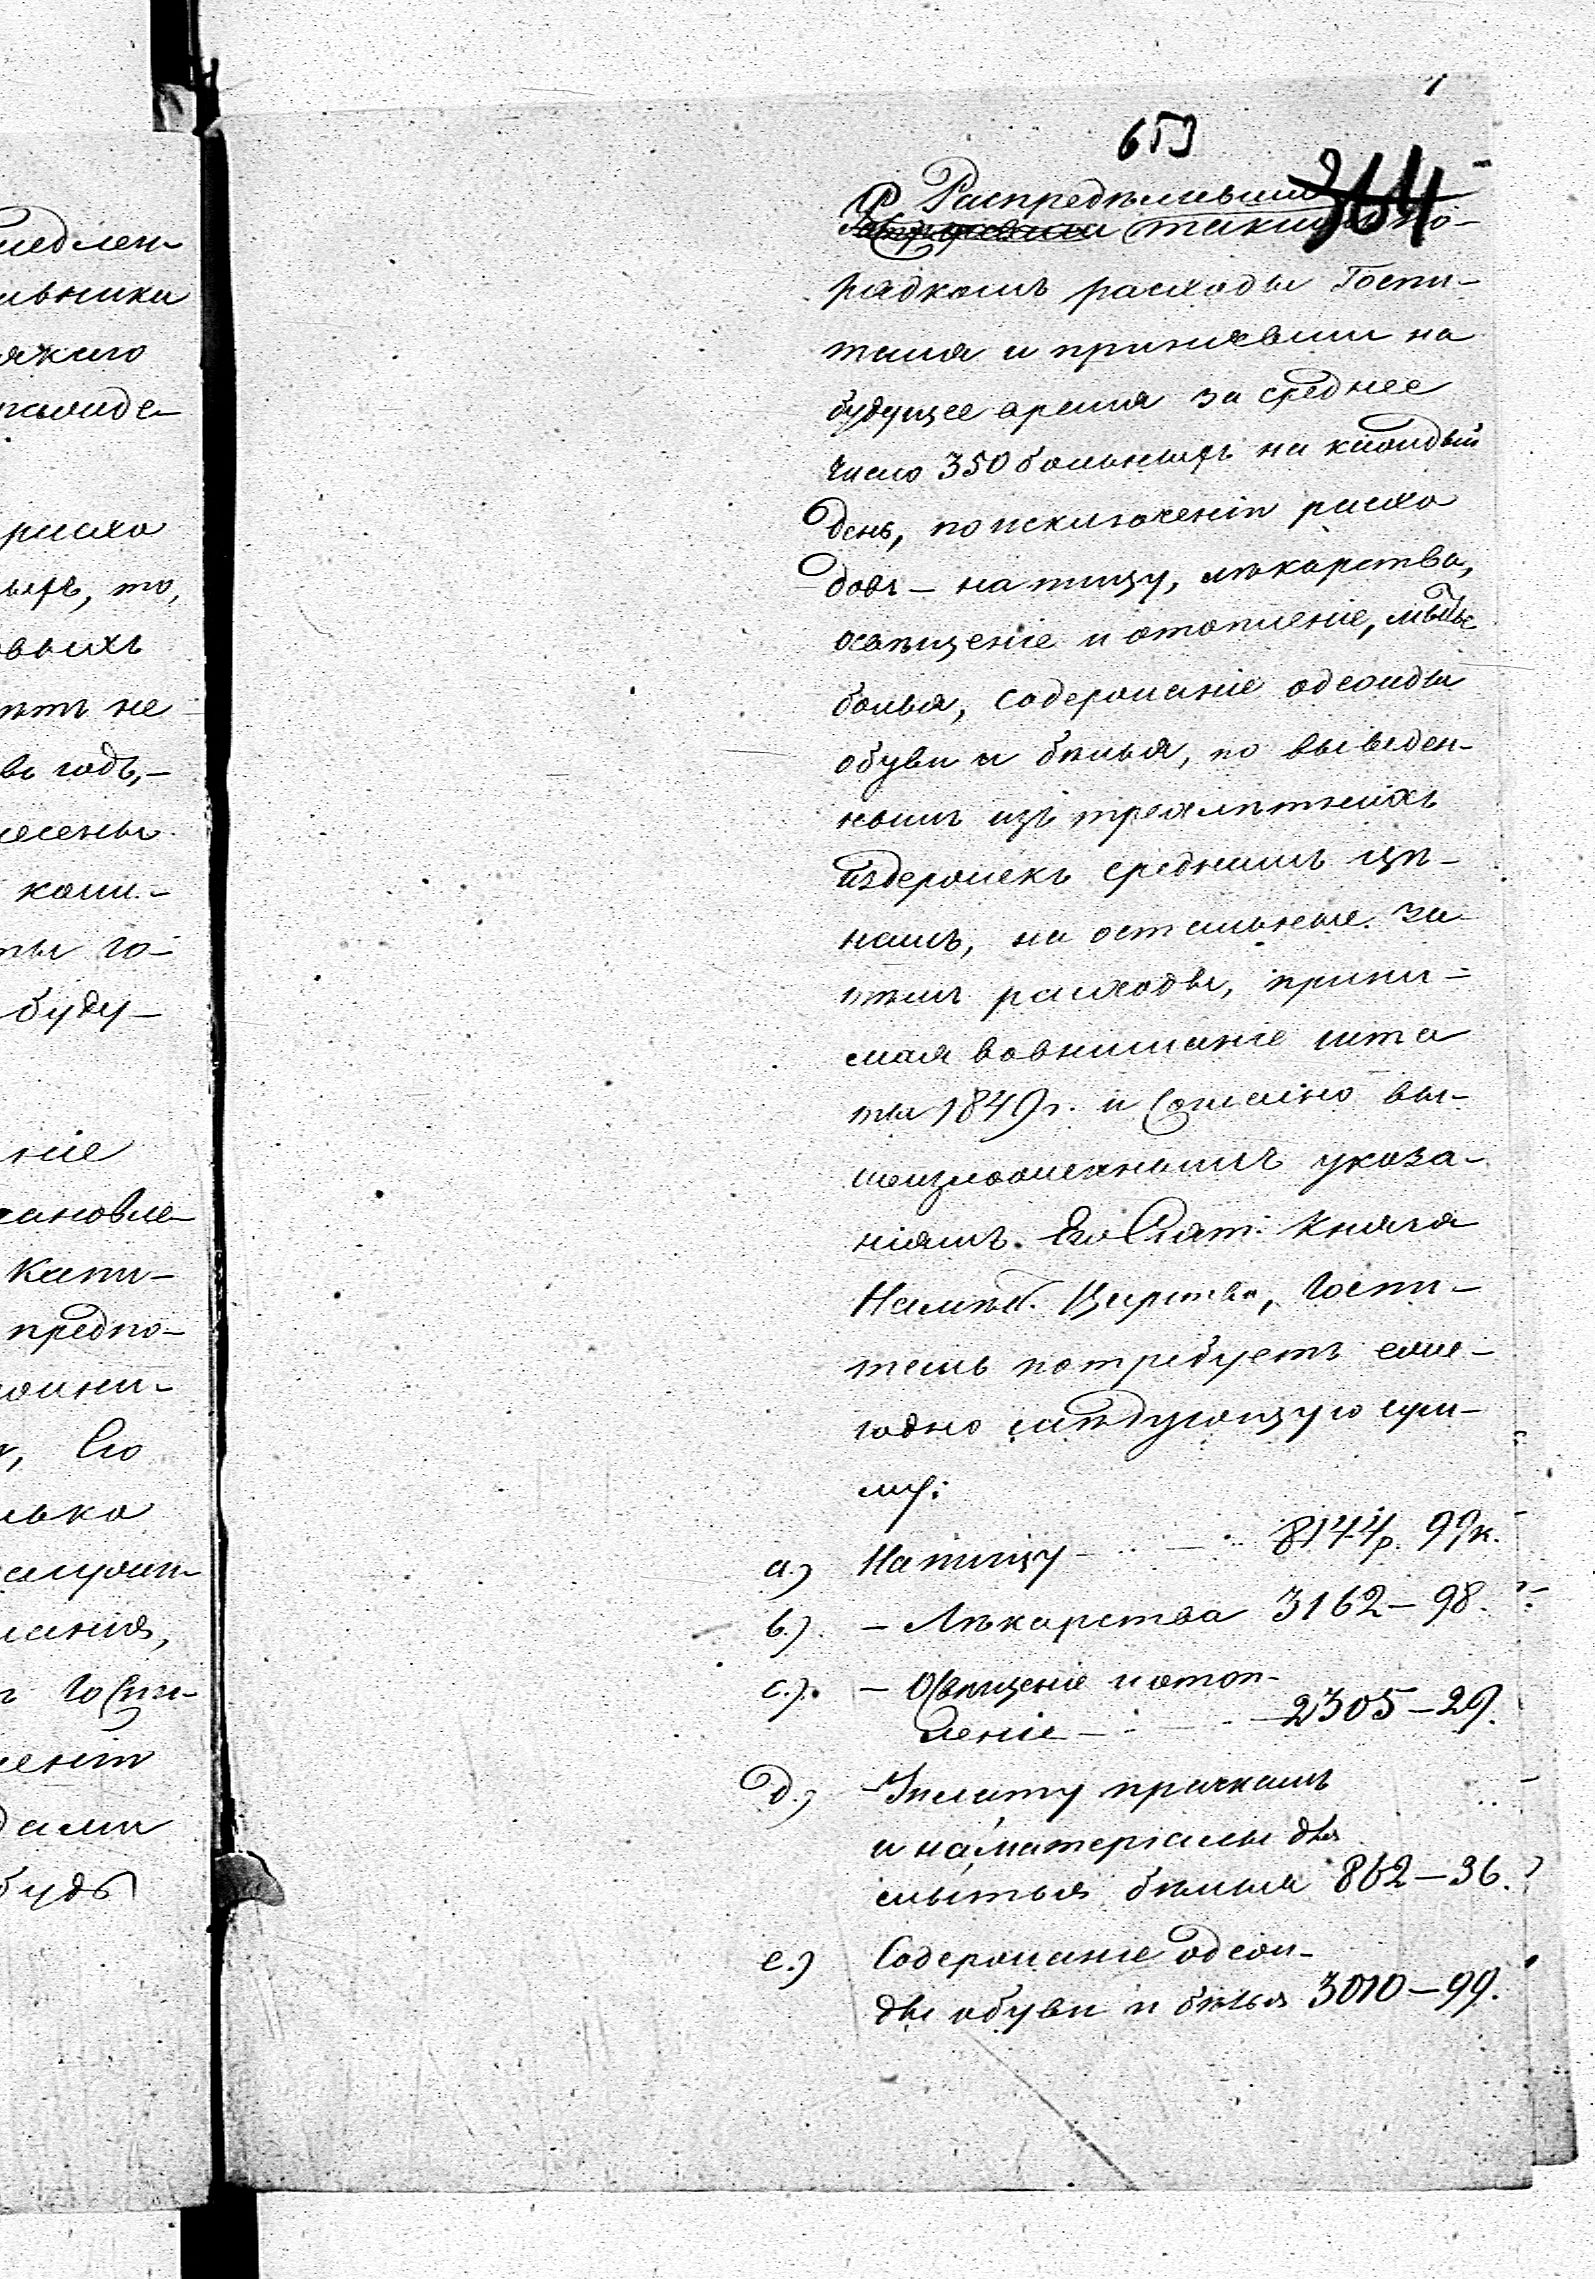 653
364
Распредѣливши
такимъ по-
рядкомъ расходы Госпи-
таля и принявши на
будущее время за среднее
число 350 больныхъ на каждый
день, по исключеніи расхо
довъ – на пищу, лѣкарства,
освѣщеніе и отопленіе, мытье
бѣлья, содержаніе одежды
обуви и бѣлья, по выведен-
нымъ изъ трехлѣтнихъ
издержекъ среднимъ цѣ-
намъ, на остальные за-
тѣмъ расходы, прини-
мая вовниманіе шта
ты 1849 г. и согласно вы-
шеизложеннымъ указа-
ніямъ Его Сіят. Князя
Намѣст. Царства, Госпи-
таль потребуетъ еже-
годно слѣдующую сум-
му:
a.) На пищу – 8144 р. 99 к.
b.) – Лѣкарства 3162 – 98.
c.) – Освѣщеніе и отоп-
леніе – 2305 – 29.
d.) – Уплату прачкамъ
и на матеріалы для
мытья бѣлья 862 – 36.
e.) Содержаніе одеж-
ды обуви и бѣлья 3010 – 99.
медлен-
расхо
ыхъ, то,
овыхъ
ѣтъ не
въ годъ,–
буду-
ніе
тановле-
предпо-
Его
ько
ланія,
Госпи-
леніи
будь